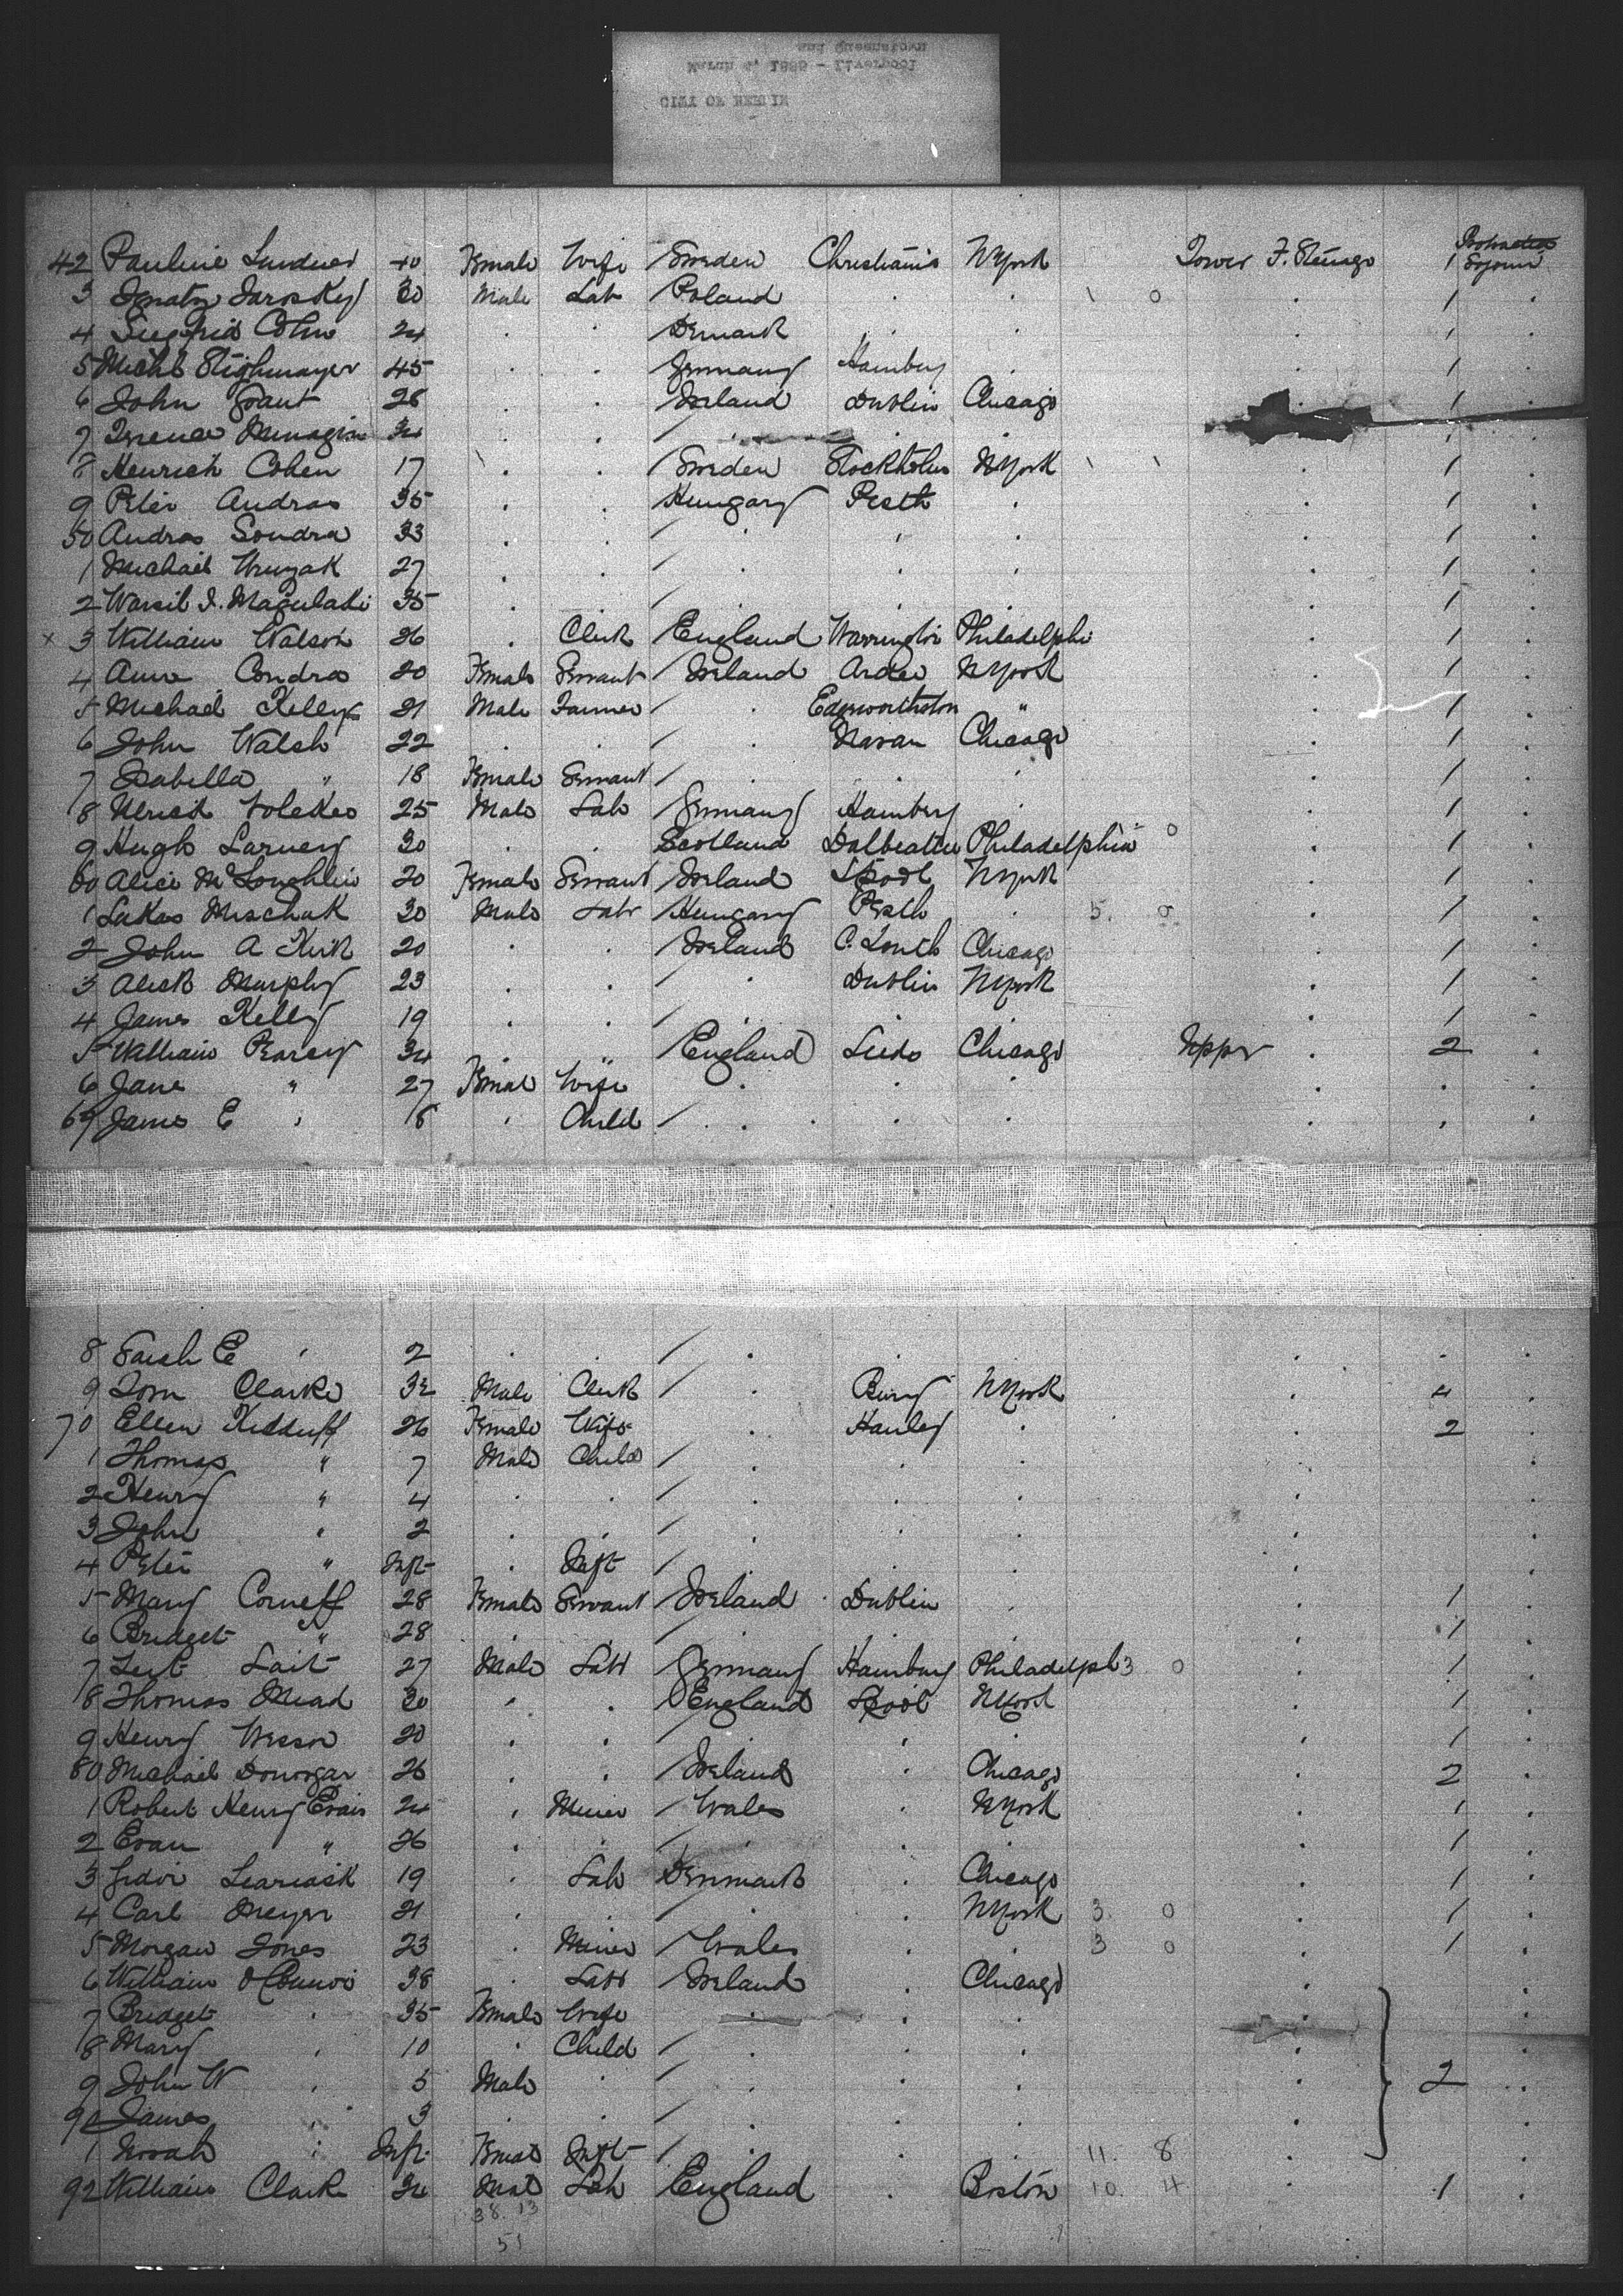 and Queenstown
March 4, 1889 - Liverpool
CITY OF BERLIN
42 Pauline 40 Female Wife Sweden Christiania NYork Lower F. Steerage 1 Protracted Sojourn
3 Ignatz Jarosky 30 Male Lab Poland . . 1 0 . 1 .
4 Siegfried Cohn 24 . . Demark . . . 1 .
5 Michl 45 . . Germany Hamburg . . 1 .
6 John Grant 28 . . Ireland Dublin Chicago . 1 .
7 Terence 34 . . / . . . . 1 .
8 Henrich Cohen 17 . . Sweden Stockholm NYork . 1 .
9 Peter Andras 35 . . Hungary Pesth . . 1 .
50 Andras Sondra 33 . . / . . . . 1 .
1 Michael 27 . . / . . . . 1 .
2 35 . . / . . . . 1 .
x 3 William Watson 26 . Clerk England Warrington Philadelphi . 1 .
4 Anne Condra 20 Female Servant Ireland Ardee NYork . 1 .
5 Michael Kelly 21 Male Farmer / . Edgworthston " . 1 .
6 John Walsh 22 . . / . Navan Chicago . 1 .
7 Isabella " 18 Female Servant / . . . . 1 .
8 Ulrich 25 Male Lab Germany Hamburg . . 1 .
9 Hugh Larney 30 . . Scotland Dalbeattie Philadelphia 0 . 1 .
60 Alice McLoughlin 20 Female Servant Ireland Lpool NYork . 1 .
1 Lukas Mischak 30 Male Labr Hungary Pesth . 5. 0 . 1 .
2 John A Kirk 20 . . Ireland C. Louth Chicago . 1 .
3 Alick Murphy 23 . . / . Dublin NYork . 1 .
4 James Kelly 19 . . / . . . . 1 .
5 William Pearcy 34 . " England Leeds Chicago Upper . 2 .
6 Jane " 27 Female Wife . . . . . .
67 James E " 8 . Child / . . . . . .
8 Sarah E " 2 . . / . . . . .
9 Tom Clarke 32 Male Clerk / . Bury NYork . 4 .
70 Ellen Kidduff 26 Female Wife . Hanley . . 2 .
1 Thomas " 7 Male Child / . . . . .
2 Henry " 4 . . / . . . . .
3 John " 2 . . / . . . . .
4 Peter " Inft . Inft / . . . . .
5 Mary Corneff 28 Female Servant Ireland Dublin . . 1 .
6 Bridget " 28 . . / . . . . 1 .
7 Lait 27 Male Labr Germany Hamburg Philadelph 3 0 . 1 .
8 Thomas Mead 30 . . England Lpool NYork . 1 .
9 Henry 20 . . / . . . . 1 .
80 Michael Donogar 26 . . Ireland . Chicago . 2 .
1 Robert Henry Evans 24 . Miner Wales . NYork . 1 .
2 Evan " 26 . " / . . . . 1 .
3 19 . Lab Denmark . Chicago . 1 .
4 Carl Meyer 21 . . / . . NYork 3. 0 . 1 .
5 Morgan Jones 23 . Miner Wales . . 3 0 . 1 .
6 William O'Connor 38 . Labr Ireland . Chicago . .
7 Bridget " 35 Female Wife . . . . .
8 Mary " 10 . Child / . . . . .
9 John W " 5 Male . / . . . . 2 .
90 James " 3 . . / . . . . .
1 Norah " Inft. Female Inft / . . . 11. 8 . .
92 William Clark 34 Male Lab England . Boston 10. 4 . 1 .
38. 13
51